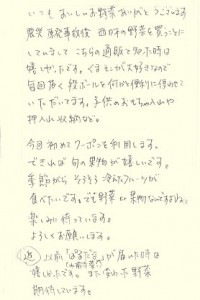 いつもおいしいお野菜ありがとうございます
震災 原発事故後 西日本の野菜を買うことに
していまして こちらの通販を知った時は
嬉しかったです。くまモンが大好きなので
毎回届く段ボールを何かと便利に使わせて
いただいてます。子供のおもちゃ入れや
押入れ収納など。
今回初めてクーポンを利用します。
できれば旬の果物が嬉しいです。
季節がら そろそろ冷たいフルーツが
食べたいです。でも野菜に果物なんですよね。
楽しみに待っています。
よろしくお願いします。
追 以前 が届いた時は
嬉しかったです。また 野菜
期待しています。